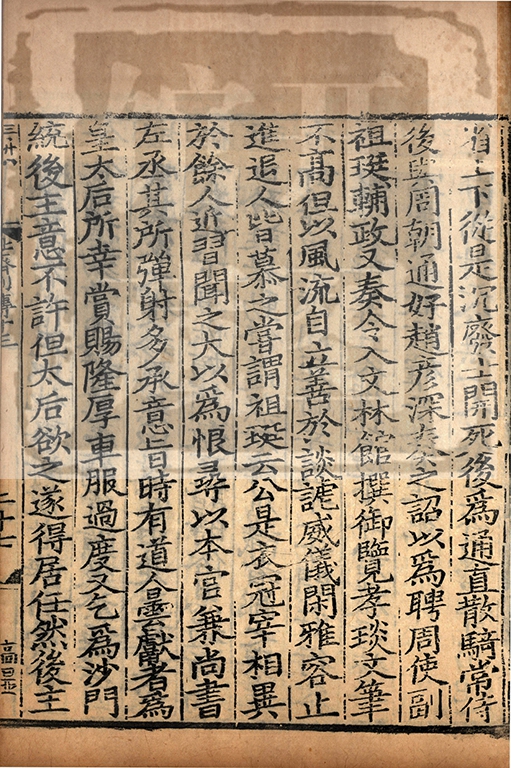 省上下從是沉廢士開死後爲通直散騎常侍
後與周朝通好趙彦深奏之詔以爲聘周使副
祖珽輔政又奏令入文林館撰御覽孝琰文筆
不高但以風流自立善於談謔威儀閑雅容止
進退人皆慕之嘗謂祖珽云公是衣冠宰相異
於餘人近習聞之大以爲恨尋以本官兼尚書
左丞其所彈射多承意旨時有道人曇獻者爲
皇太后所幸賞賜隆厚車服過度又乞爲沙門
統後主意不許但太后欲之遂得居任然後主
北齊列傳十三
二十七